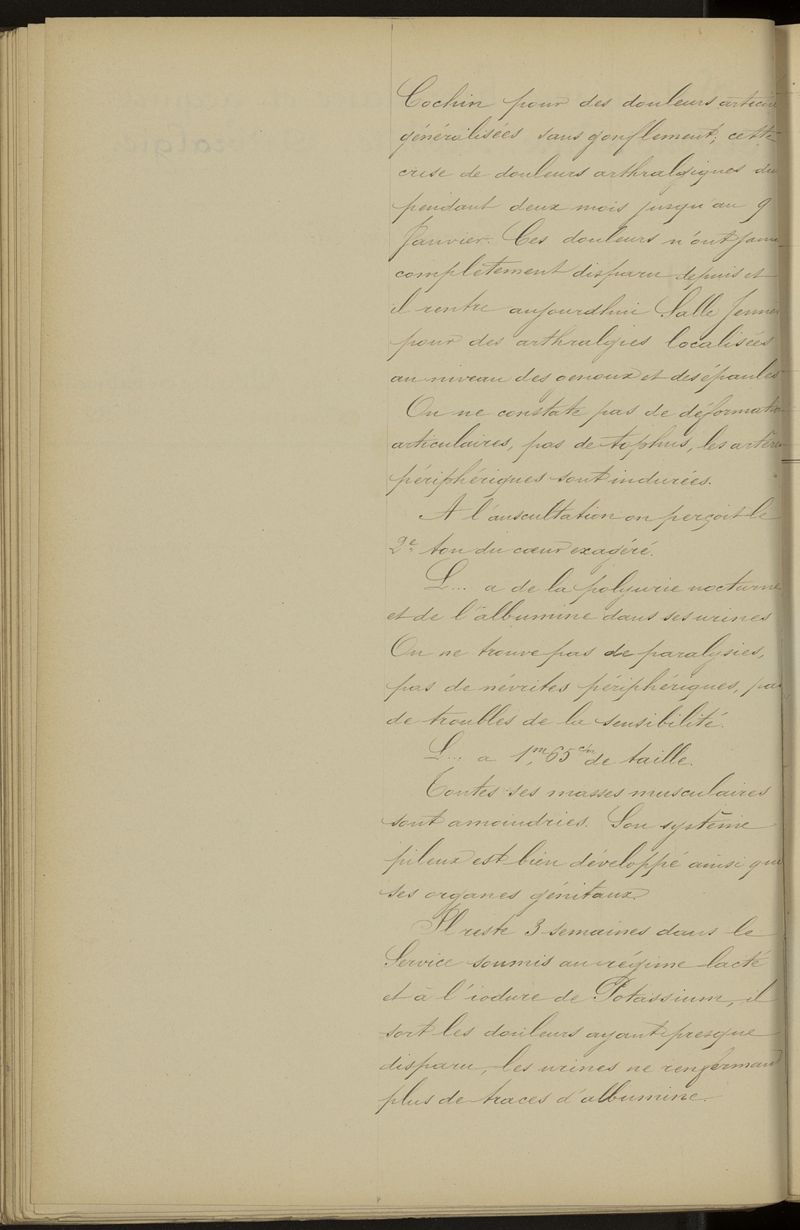 Cochin pour des douleurs articu
généralisées sans gonflement; cette
crise de douleurs arthralgiques du
pendant deux mois jusqu'au 9
Janvier. Ces douleurs n'ont jama
complètement disparu depuis et
il rentre aujourdhui Salle Jenner
pour des arthralgies localisées
au niveau des genoux et des épaules
On ne constate pas de déformatio
articulaires, pas de tophus, les artère
périphériques sont indurées.
A l'auscultation on perçoit le
2e ton du cœur exagéré.
L... a de la polyurie nocturne
et de l'albumine dans ses urines
On ne trouve pas de paralysies,
pas de névrites périphériques, pas
de troubles de la sensibilité.
L... a 1m,65cm de taille.
Toutes ses masses musculaires
sont amoindries. Son système
pileux est bien développé ainsi que
ses organes génitaux.
Il reste 3 semaines dans le
Service soumis au régime lacté
et à l'iodure de Potassium, il
sort les douleurs ayant presque
disparu, les urines ne renfermant
plus de traces d'albumine.